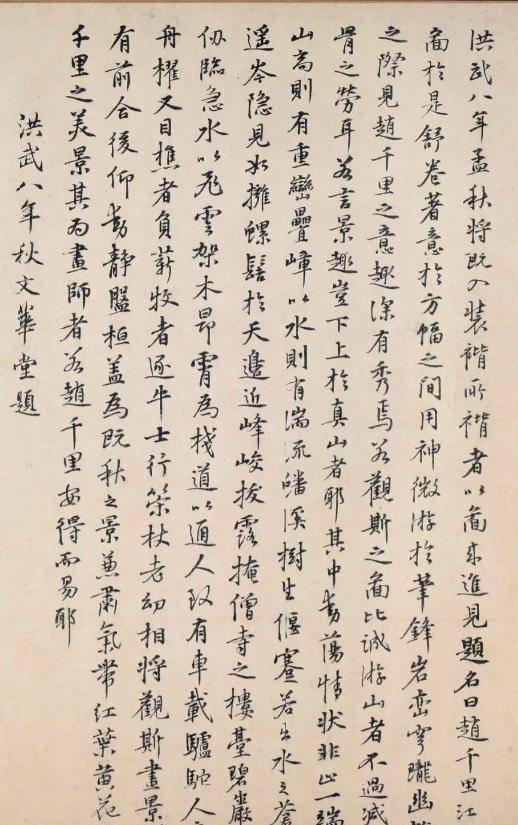 洪武八年孟秋將既入裝褙所褙者以啚來進見題名曰趙千里江
啚於是舒卷著意於方幅之間用神微游於筆鋒岩巒穹矓幽
之際見趙千里之意趣深有秀焉若觀斯之啚比誠游山者不過减
骨之勞耳若言景趣豈下上於真山者耶其中動蕩情狀非止一端
山高則有重巒疊嶂以水則有湍流蟠溪樹生偃蹇若出水之蒼
遥岑隐見如擁螺髻於天邉近峰峻拔露掩僧寺之樓臺碧巖
仞臨急水以飛雲架木昂霄為棧道以通人致有車載驢駝人
舟櫂又目樵者負薪牧者逐牛士行策杖老幼相將觀斯畫景
有前合後仰動靜盤桓盖為既秋之景兼肅氣帶紅葉黄花
千里之美景其為畫師者若趙千里安得而易耶
洪武八年秋文華堂題